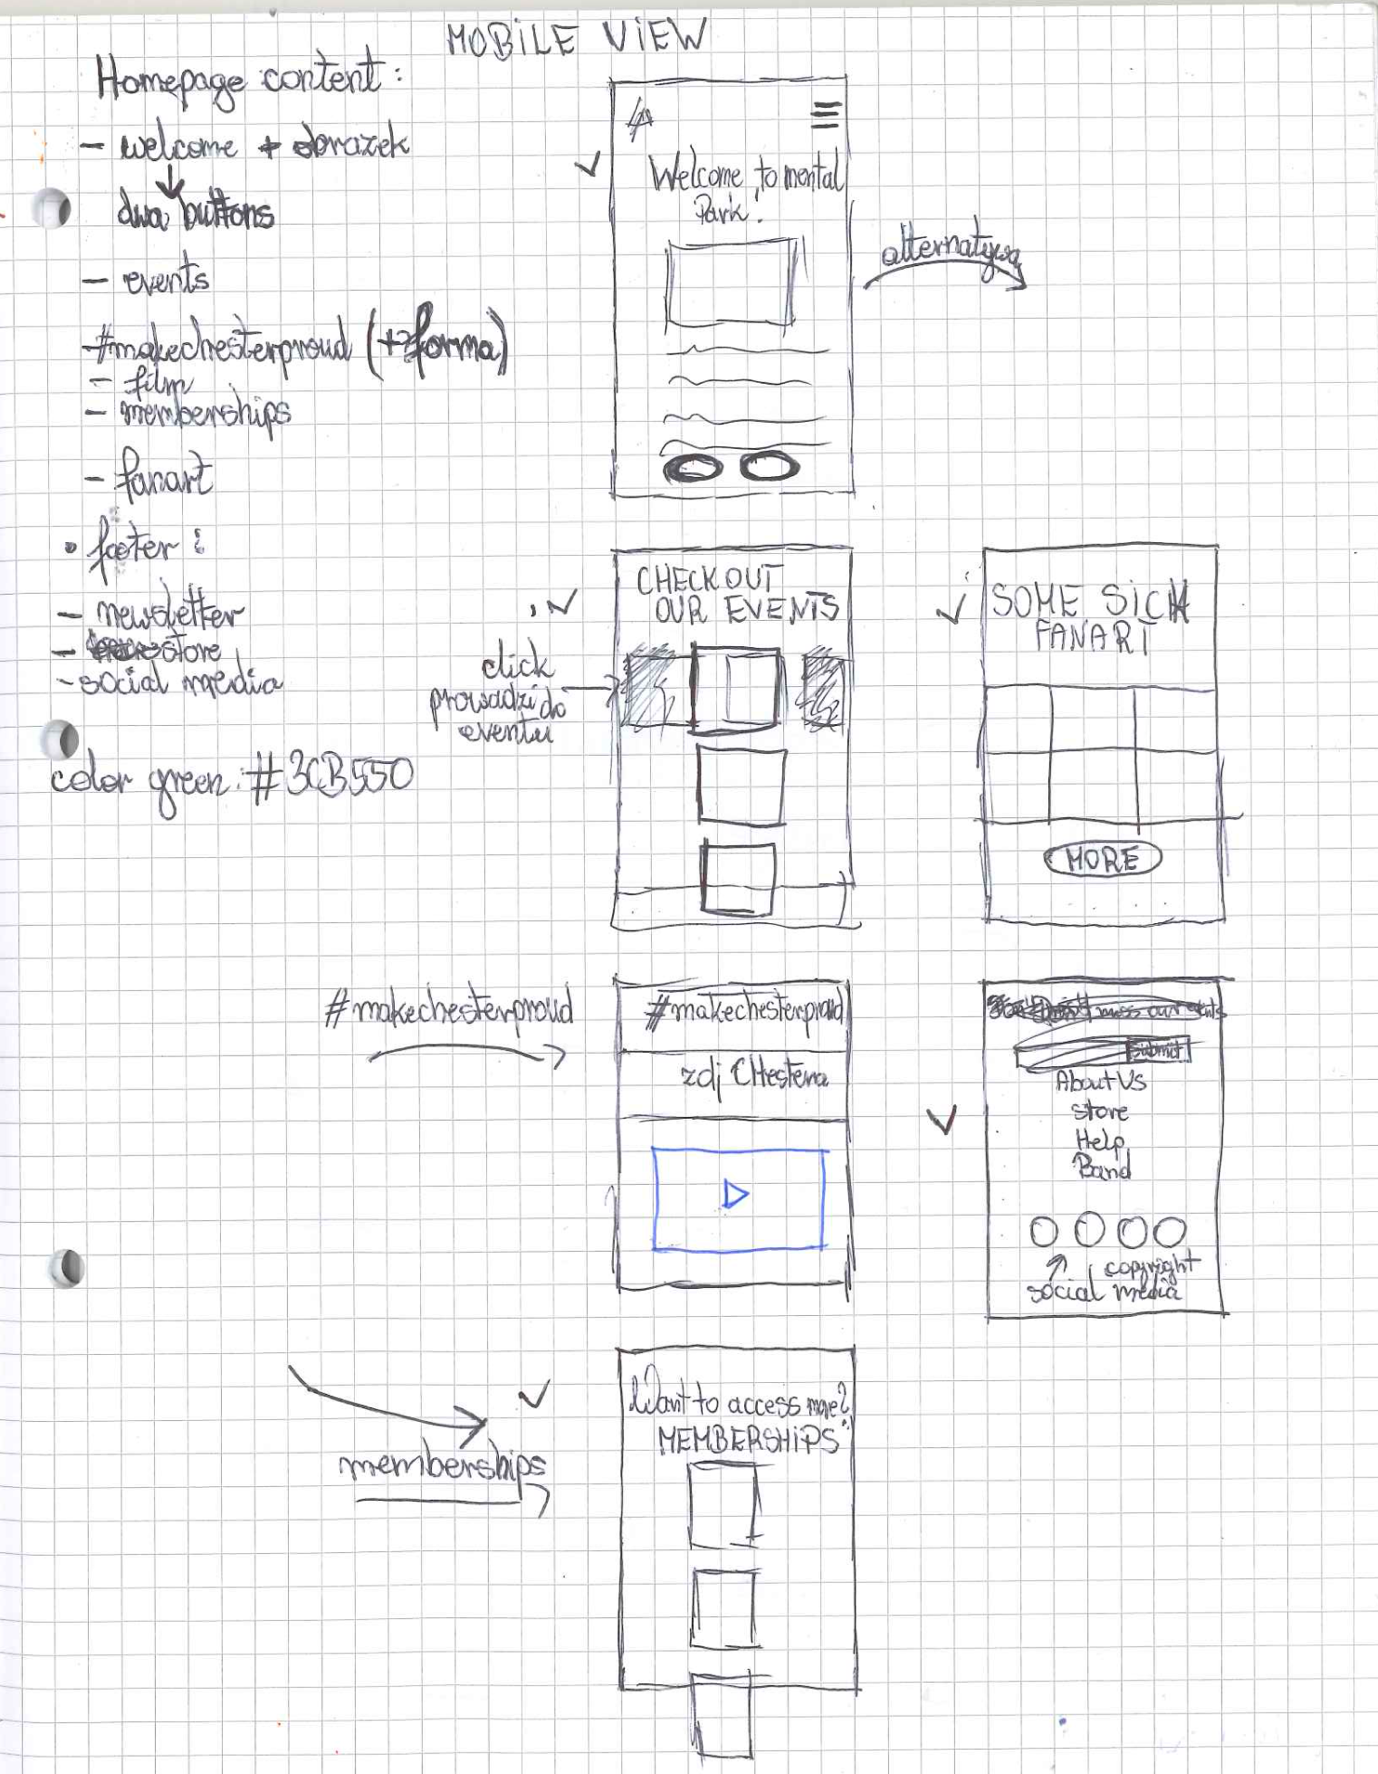 MOBILE VIEW
Homepage content:
- welcome + obrazek
dwa buttons
- events
-#makechesterproud (+?forma)
- film
- memberships
- fanart
• footer:
- newsletter
- store
- social media
color green: #3CB550
Welcome to mental
Park!
alternatywa
CHECK OUT
OUR EVENTS
click
prowadzi do
eventu
SOME SICK
FANART
MORE
#makechesterproud
#makechesterproud
zdj CHestera
miss our events
submit
About Us
store
Help
Band
copyright
social media
Want to access more?
MEMBERSHIPS
memberships